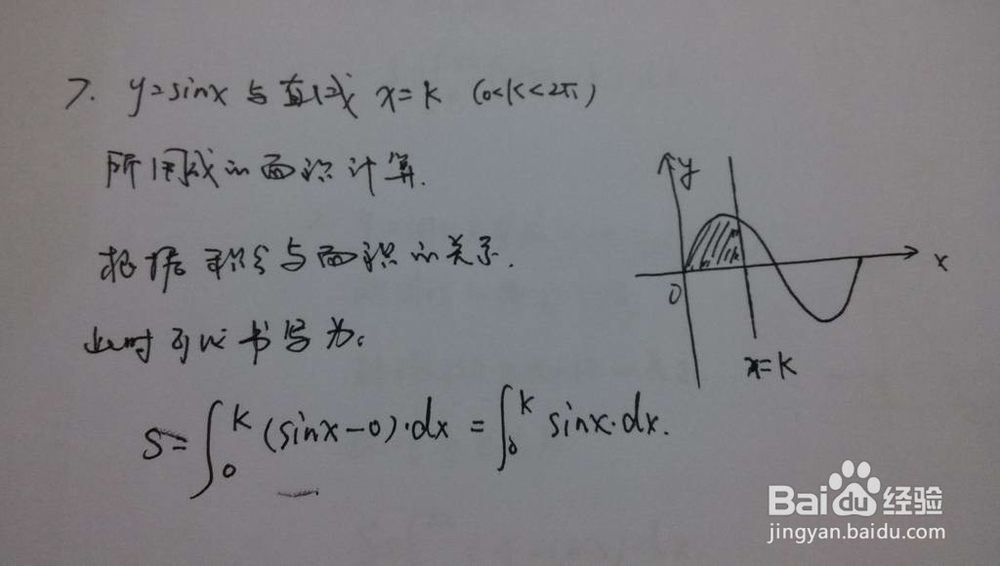 7. y=sinx与直线 x=k (0<k<2π)
所围成的面积计算.
根据积分与面积的关系.
此时可以书写为:
S=∫₀ᵏ(sinx-0)·dx=∫₀ᵏ sinx·dx.
y
x
0
x=k
Baidu经验
jingyan.baidu.com